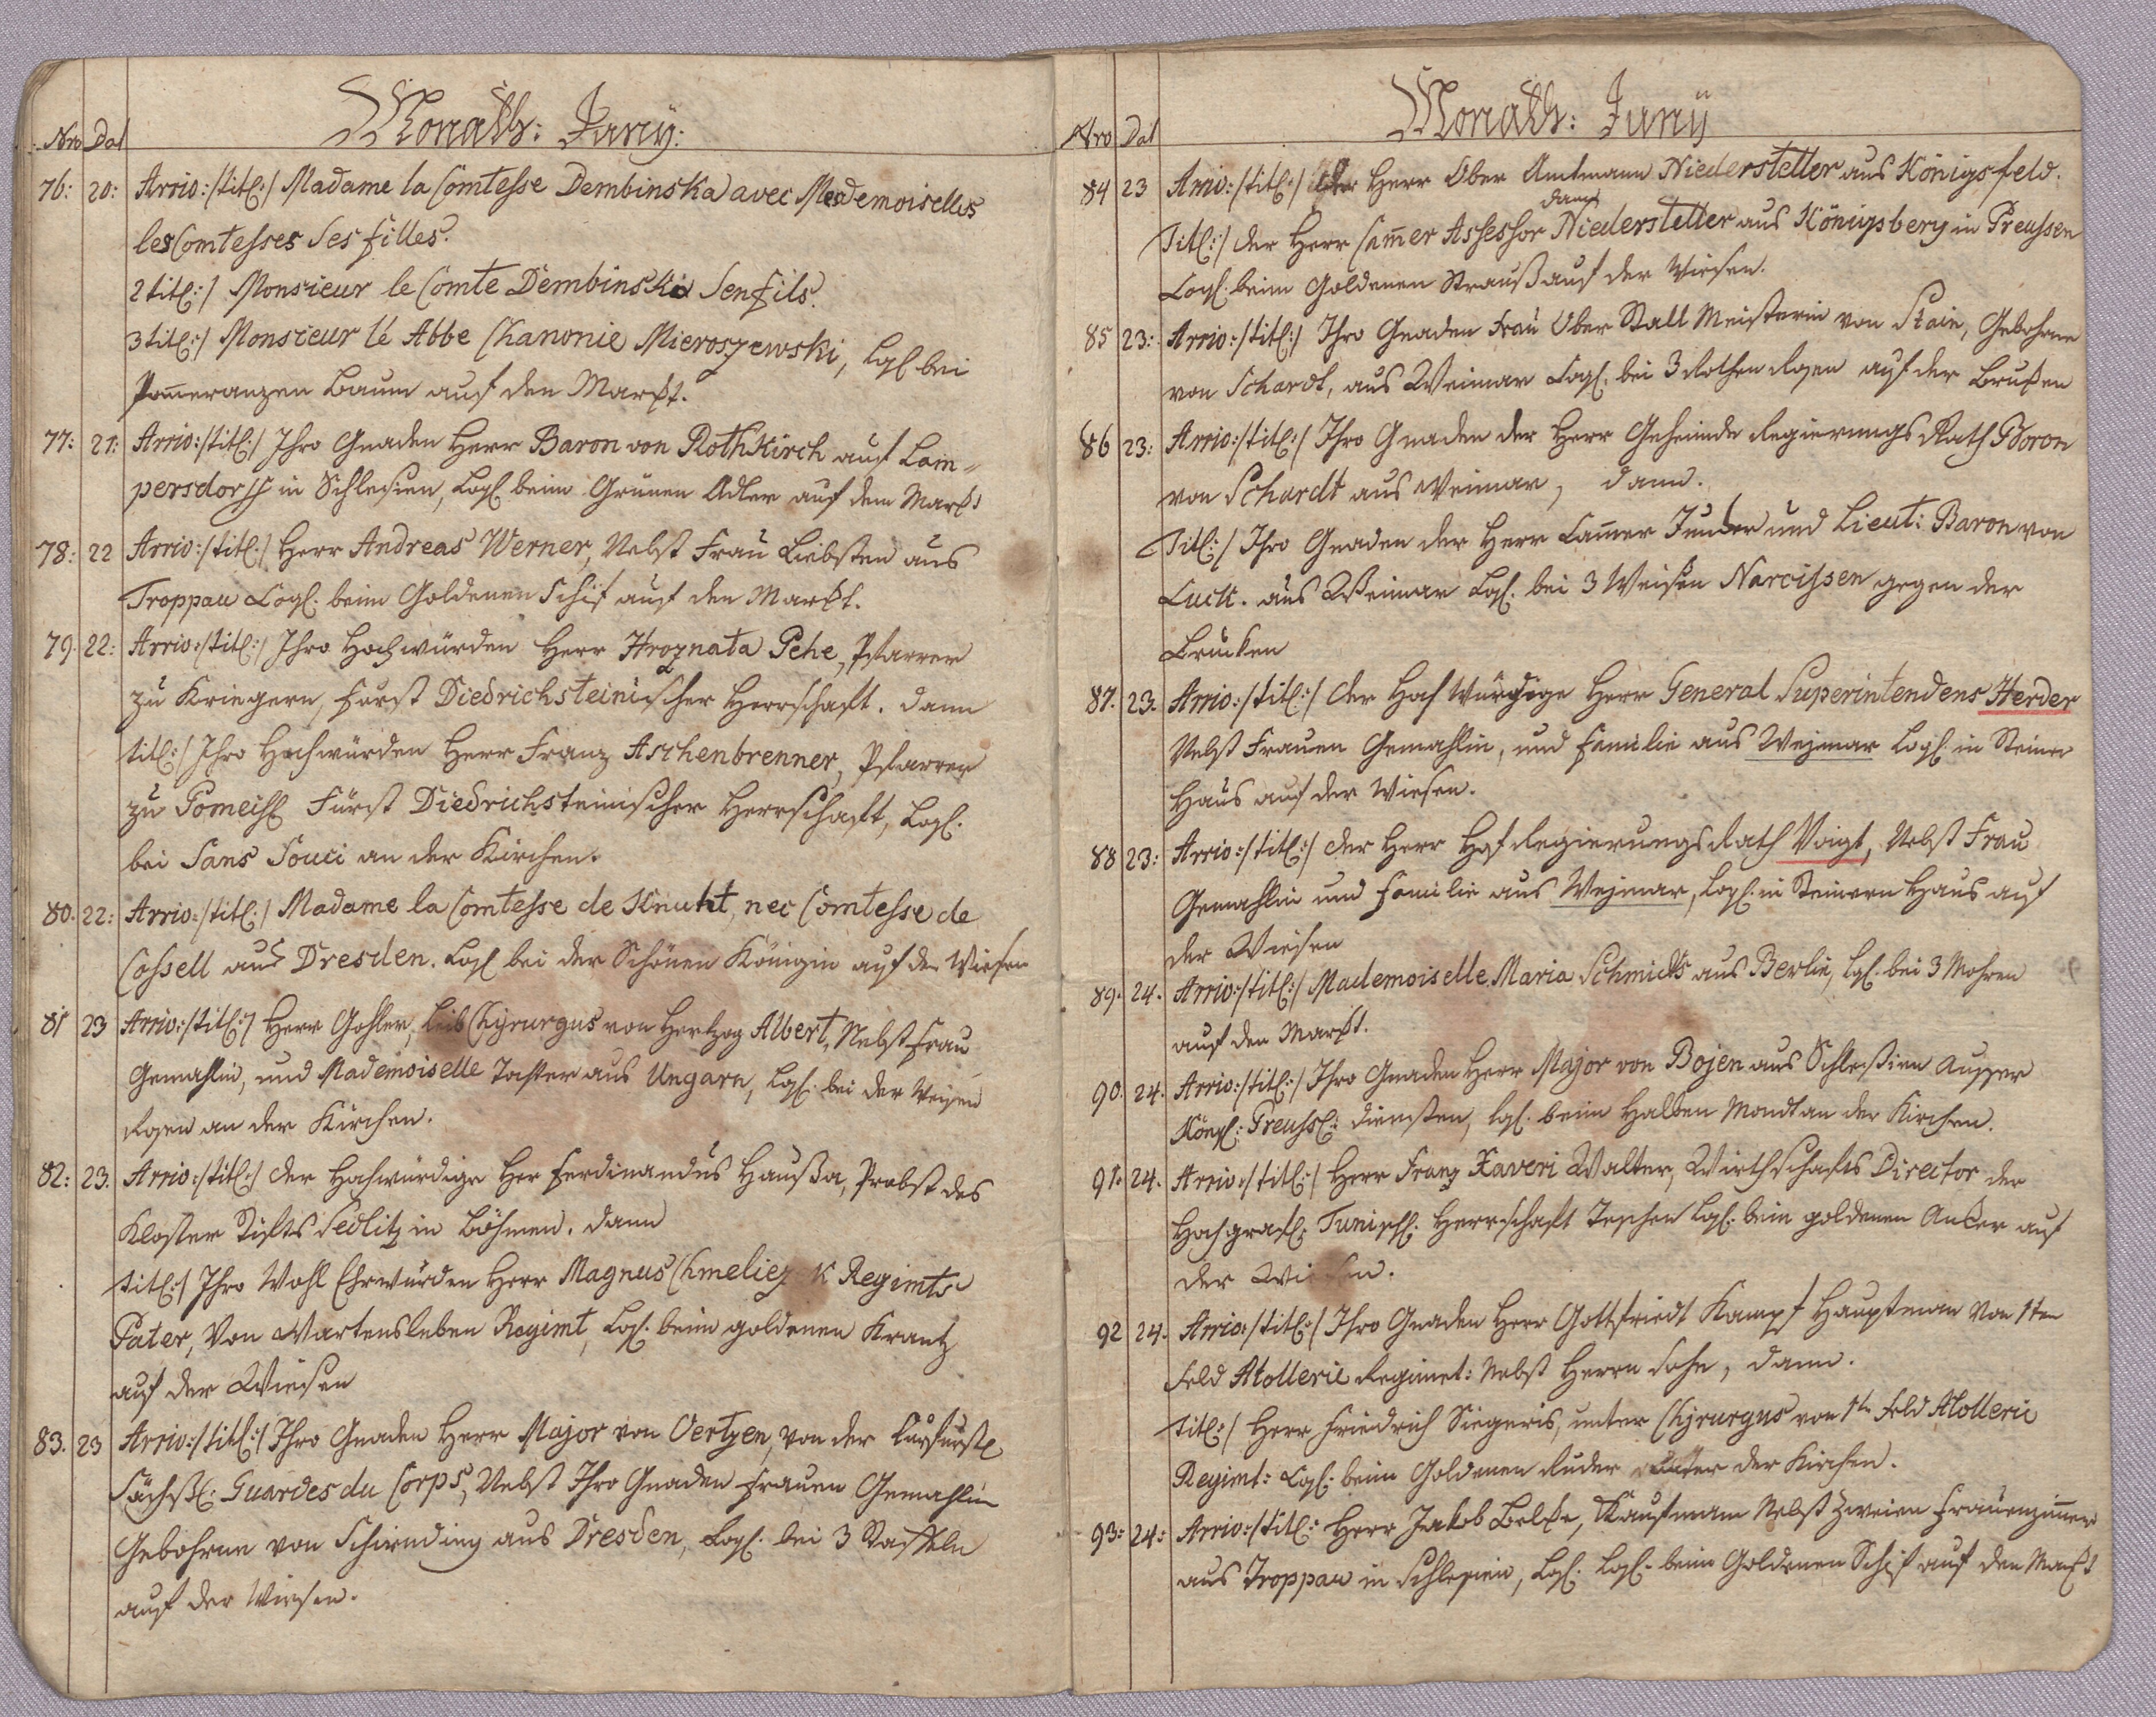 Monath: Juny:
Nro Dat
76: 20: Arriv: /:titl:/ Madame la Comtesse Dembinska avec Mademoiselles
les Comtesses Ses filles.
2 titl:/ Monsieur le Comte Dembinski Son fils.
3 titl:/ Monsieur le Abbe Chanonie Mieroszewski, Logl. bei
Pom̄eranzen Baum auf den Markt.
77: 21: Arriv: /:titl:/ Ihro Gnaden Herr Baron von Rothkirch auf Lam-
persdorff in Schlesien, Logl. beim Grünen Adler auf dem Markt
78: 22 Arriv: /:titl:/ Herr Andreas Werner, Nebst Frau Liebsten aus
Troppau Logl. beim Goldenen Schif auf den Markt.
79. 22: Arriv: /:titl:/ Ihro Hochwürden Herr Hroznata Pehe, Pfarrer
zu Kriegern, Fürst Diedrichsteinischer Herrschaft. dann
titl:/ Ihro Hochwürden Herr Franz Aschenbrenner, Pfarrer
zu Pomeisl Fürst Diedrichsteinischer Herrschaft, Logl.
bei Sans Souci an der Kirchen.
80. 22: Arriv: /:titl:/ Madame la Comtesse de Knuht, nee Comtesse de
Cossell aus Dresden. Logl. bei der Schönen Königin auf der Wiesen
81 23 Arriv: /:titl:/ Herr Gohler, Leib Chyrurgus von Hertzog Albert, Nebst Frau
Gemahlin, und Mademoiselle Tochter aus Ungarn, Logl. bei der Weisen
Rosen an der Kirchen.
82: 23. Arriv: /:titl:/ der Hochwürdige Her Ferdinandus Haußa, Probst des
Kloster Stifts Sedlitz in Böhmen. dann
titl:/ Ihro Wohl Ehrwürden Herr Magnus Chmeliez K Regimts
Pater, Von Wartensleben Regimt, Logl. beim goldenen Krantz
auf der Wiesen
83. 23 Arriv: /:titl:/ Ihro Gnaden Herr Major von Oertzen, von der Kurfürstl
Sächßl: Guardes du Corps, Nebst Ihro Gnaden Frauen Gemahlin
Gebohrne von Schirnding aus Dresden, Logl. bei 3 Staffeln
auf der Wiesen.
Monath: Juny
Nro Dat
84 23 Arriv: /:titl:/ der Herr Ober Amtmann Niederstetter aus Königsfeld.
dann
Titl:/ der Herr Cam̄er Assessor Niederstetter aus Königsberg in Preussen
Logl. beim Goldenen Strauß auf der Wiesen.
85 23: Arriv: /:titl:/ Ihro Gnaden Frau Ober Stall Meisterin von Stain, Gebohrne
von Schardt, aus Weimar Logl. bei 3 Rothen Rosen auf der Brucken
86 23: Arriv: /:titl:/ Ihro Gnaden der Herr Geheimde Regierungs Rath Baron
von Schardt aus Weimar, dann.
Titl:/ Ihro Gnaden der Herr Cam̄er Junker und Lieut: Baron von
Luck. aus Weimar Logl. bei 3 Weisen Narcissen gegen der
Brucken
87. 23. Arriv: /:titl:/ der Hoch Würdige Herr General Superintendens Herder
Nebst Frauen Gemahlin, und Familie aus Wejmar Logl. in Steiner
Haus auf der Wiesen.
88 23: Arriv: /:titl:/ der Herr Hof Regierungs Rath Voigt, Nebst Frau
Gemahlin und Familie aus Wejmar, Logl. in Steinern Haus auf
der Wiesen
89. 24. Arriv: /:titl:/ Mademoiselle Maria Schmidts aus Berlin, Logl. bei 3 Mohren
auf den Markt.
90. 24. Arriv: /:titl:/ Ihro Gnaden Herr Major von Bojen aus Schleßien Ausser
Köngl: Preussl: Diensten, Logl. beim Halben Mondt an der Kirchen.
91. 24. Arriv: /:titl:/ Herr Franz Xaveri Walter, Wirthschafts Director der
Hochgrafl: Tunischl: Herrschaft Teschen Logl. beim goldenen Anker auf
der Wiesen.
92 24. Arriv: /:titl:/ Ihro Gnaden Herr Gottfriedt Kampf Hauptman von 1ten
Feld Atollerie Regimet: Nebst Herrn Sohn, dann.
Titl:/ Herr Friedrich Siegeris, unter Chyrurgus von 1tn Feld Atollerie
Regimt: Logl. beim Goldenen Ruder der Kirchen.
93: 24: Arriv: /:titl: Herr Jakob Belke, Kaufmann Nebst zweien Frauenzim̄er
aus Troppau in Schlesien, Logl. Logl. beim Goldenen Schif auf den Markt